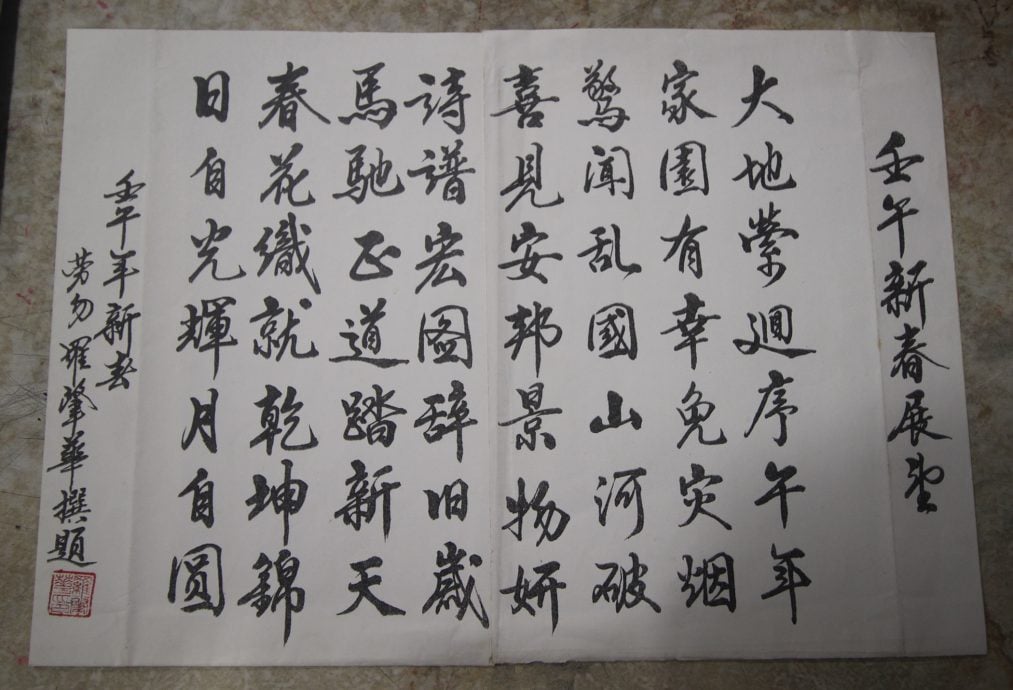 壬午新春展望
大地縈迴序午年
家園有幸免灾烟
驚闻乱國山河破
喜見安邦景物妍
詩譜宏图辞旧歲
馬馳正道踏新天
春花織就乾坤錦
日自光輝月自圆
壬午年新春
劳勿 羅肇華撰題